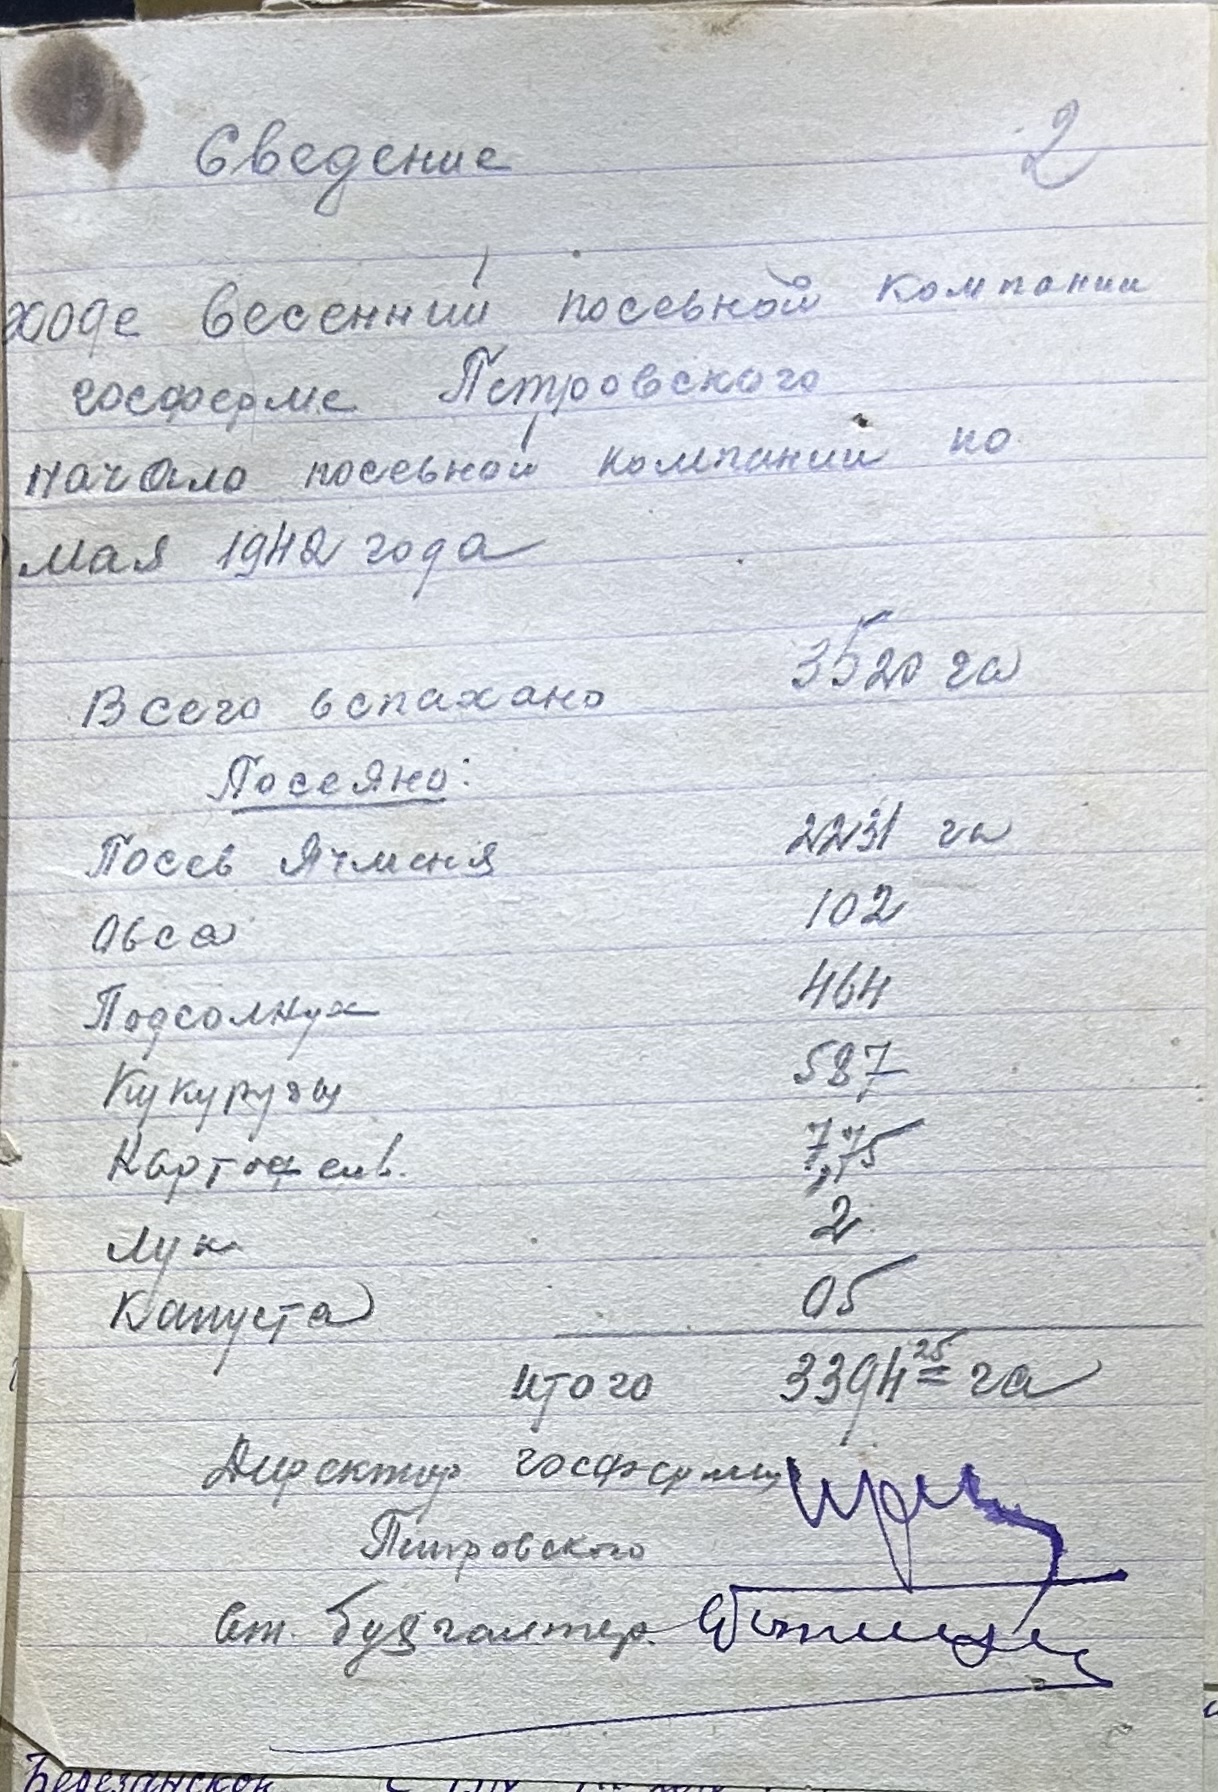 Сведение 2
ходе весенний посевной компании
госферме Петровского
начало посевной компании по
мая 1942 года
Всего вспахано 3520 га
Посеяно:
Посев Ячменя 2231 га
Овса 102
Подсолнух 464
Кукурузы 587
Картофель 7,75
Лук 2
Капуста 05
итого 3394 25 га
Директор госфермы
Петровского
Ст. Бухгалтер.
Березанской